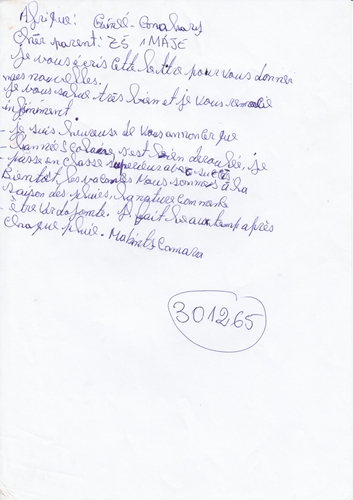 Afrique: Guinée-Conakary
Cher parent: Z5 1 MAJE
Je vous écris cette lettre pour vous donner
mes nouvelles.
Je vous salue très bien et je vous remercie
infiniment
- Je suis heureuse de vous annoncer que
l'année Scolaire s'est bien deroulée, je
passe en classe superieur avec succès
Bientôt les vacances Nous sommes à la
saison des pluies, la nature commence
- être verdoyante. Il fait beau temp après
chaque pluie. Camara
301265